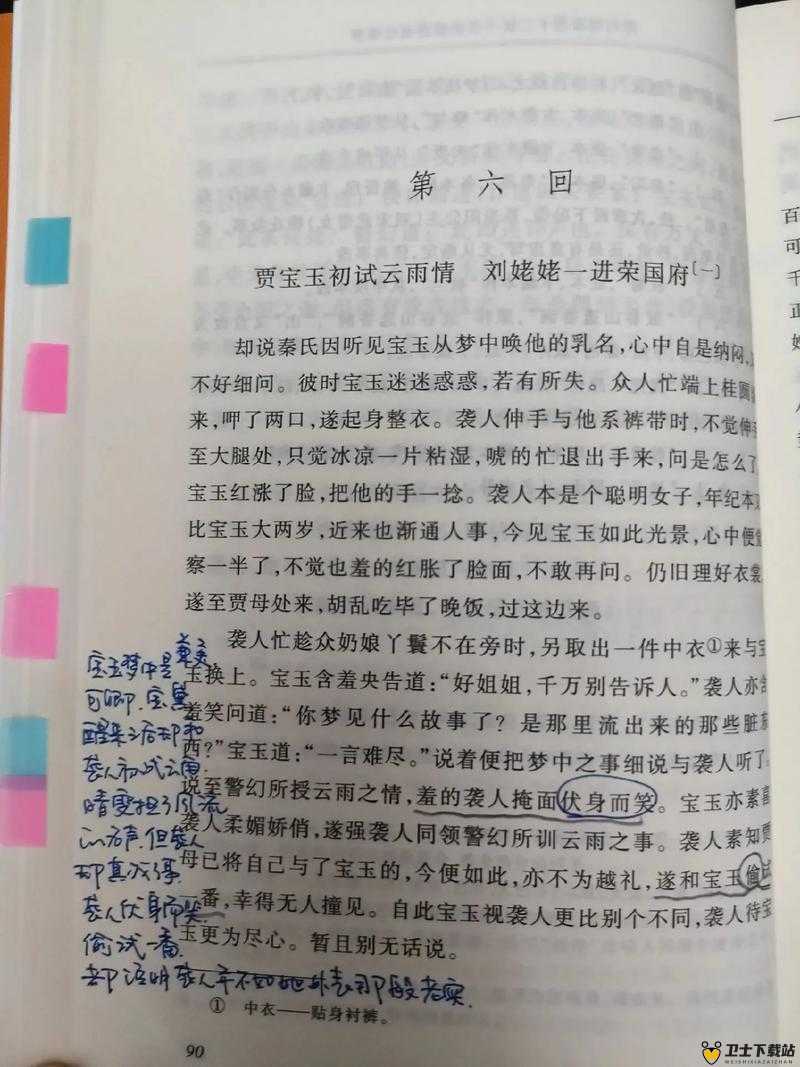 第六回
贾宝玉初试云雨情 刘姥姥一进荣国府〔一〕
却说秦氏因听见宝玉从梦中唤他的乳名，心中自是纳闷，
不好细问。彼时宝玉迷迷惑惑，若有所失。众人忙端上桂圆
来，呷了两口，遂起身整衣。袭人伸手与他系裤带时，不觉伸手
至大腿处，只觉冰凉一片粘湿，唬的忙退出手来，问是怎么了
宝玉红涨了脸，把他的手一捻。袭人本是个聪明女子，年纪本
比宝玉大两岁，近来也渐通人事，今见宝玉如此光景，心中便觉
察一半了，不觉也羞的红胀了脸面，不敢再问。仍旧理好衣裳
遂至贾母处来，胡乱吃毕了晚饭，过这边来。
袭人忙趁众奶娘丫鬟不在旁时，另取出一件中衣①来与宝
玉换上。宝玉含羞央告道：“好姐姐，千万别告诉人。”袭人亦含
羞笑问道：“你梦见什么故事了？是那里流出来的那些脏东
西？”宝玉道：“一言难尽。”说着便把梦中之事细说与袭人听了。
说至警幻所授云雨之情，羞的袭人掩面伏身而笑。宝玉亦素喜
袭人柔媚娇俏，遂强袭人同领警幻所训云雨之事。袭人素知贾
母已将自己与了宝玉的，今便如此，亦不为越礼，遂和宝玉偷试
一番，幸得无人撞见。自此宝玉视袭人更比别个不同，袭人待宝
玉更为尽心。暂且别无话说。
宝玉梦中是兼美
可卿，宝黛
醒来之后却和
袭人初试云雨
晴雯担了风流
的名声，但袭人
却真
袭人伏身而笑
偷试一番
却证明袭人并不如她外表那般老实
① 中衣——贴身衬裤。
90
百
可
千
正
卫士下载站
WEISHIXIAZAIZHAN